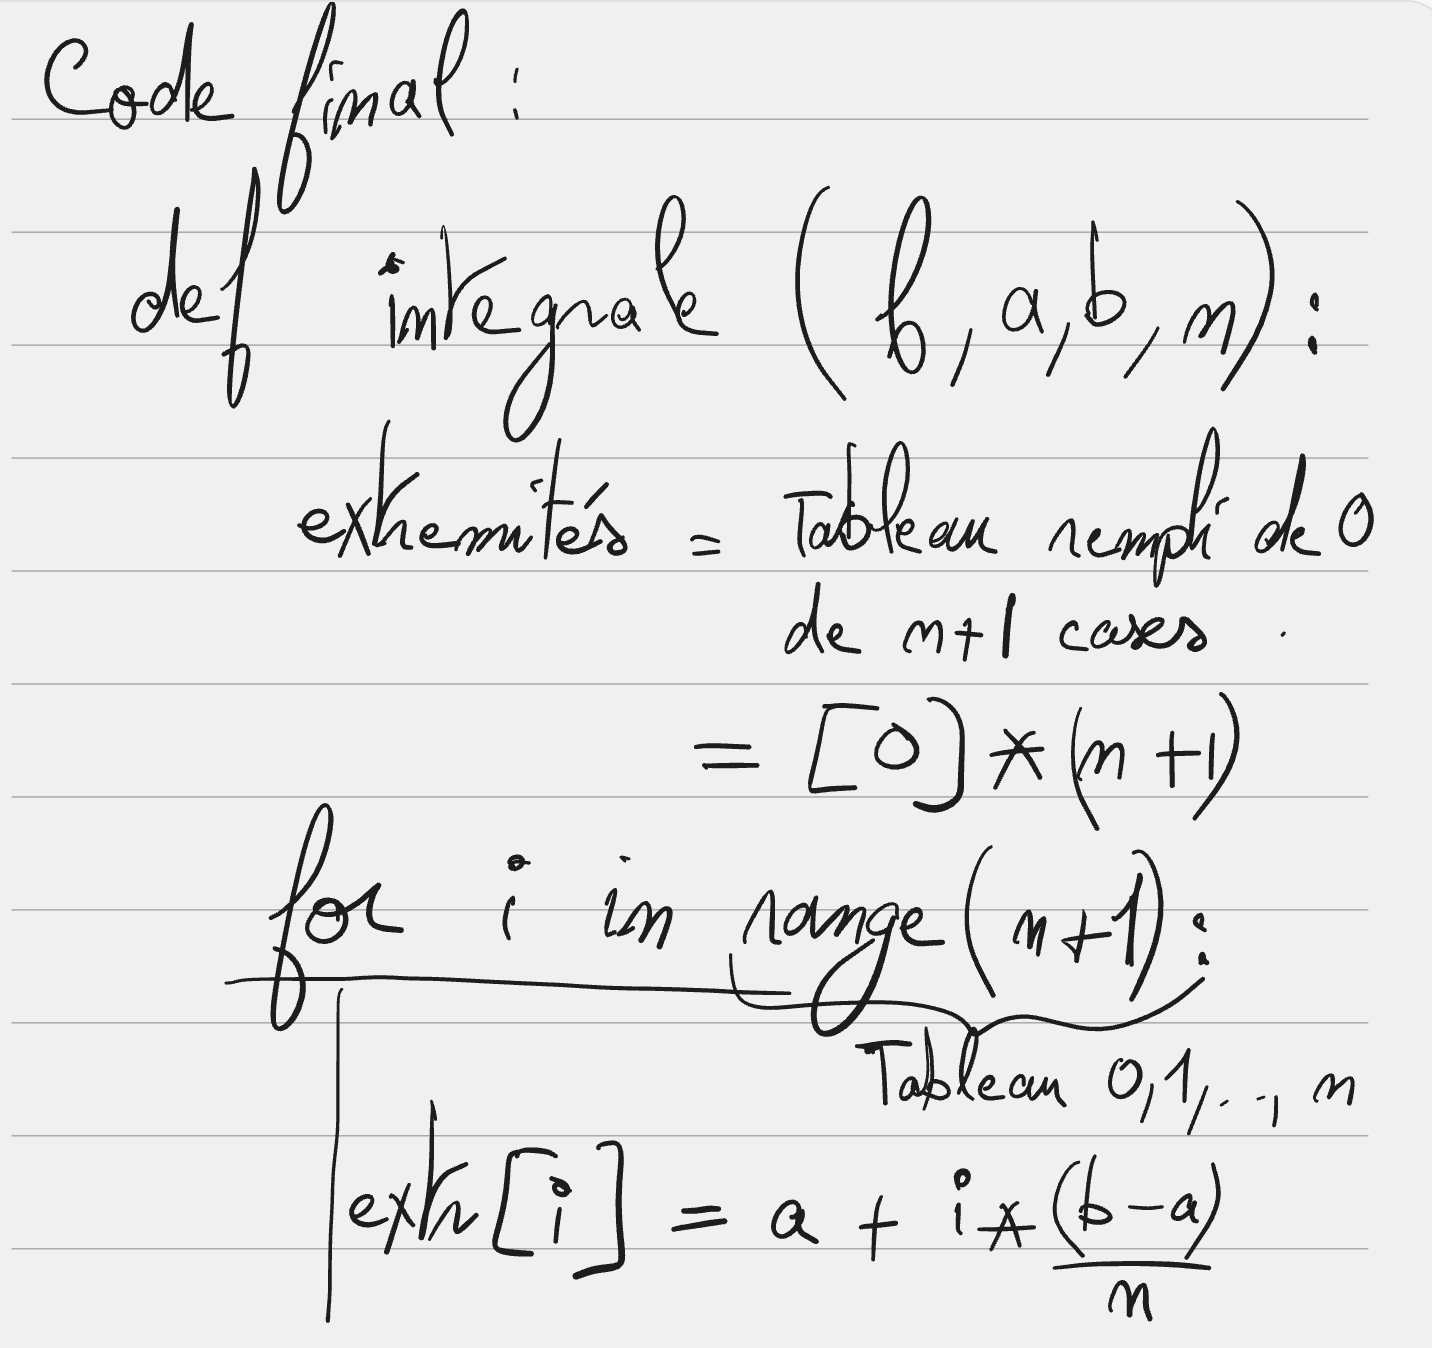 Code final :
def integrale (f, a, b, n) :
extremités = Tableau rempli de 0
de n+1 cases .
= [0] * (n +1)
for i in range (n+1) :
Tableau 0,1,..., n
extr [i] = a + i * (b-a)
n